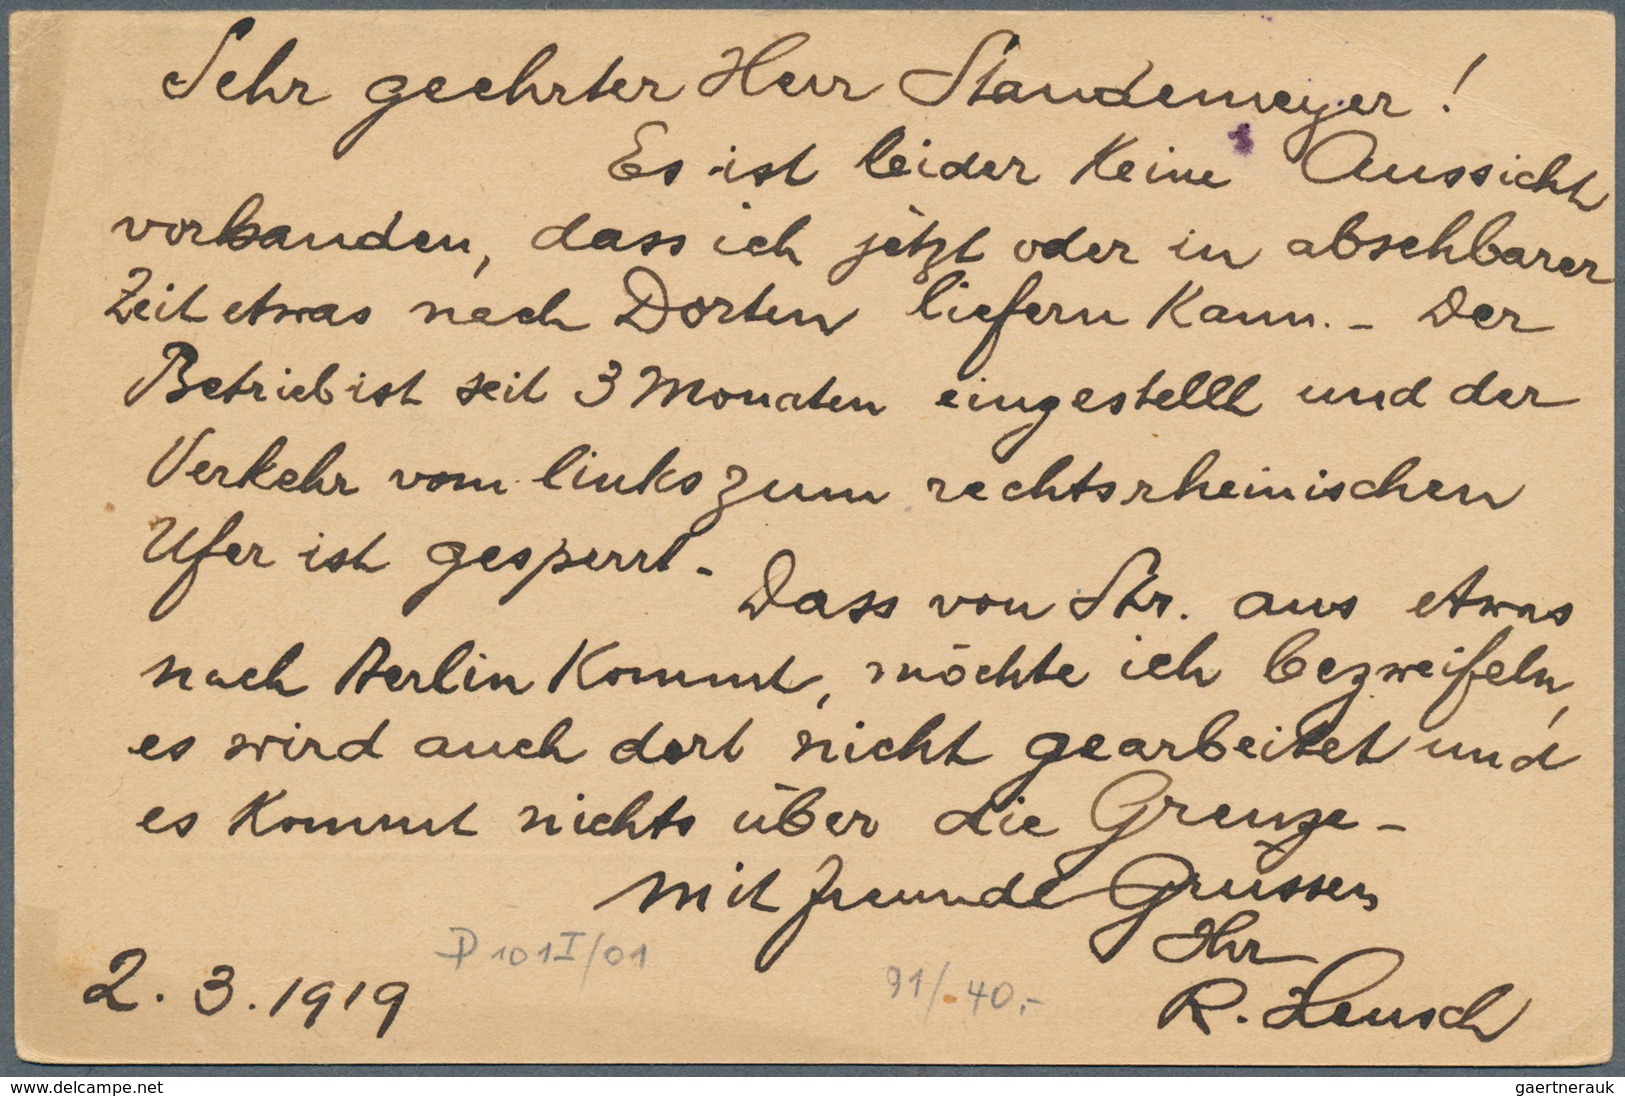 Sehr geehrter Herr Standemeyer!
Es ist leider keine Aussicht
vorhanden, dass ich jetzt oder in absehbarer
Zeit etwas nach Dorten liefern kann. – Der
Betrieb ist seit 3 Monaten eingestellt und der
Verkehr vom links zum rechtsrheinischen
Ufer ist gesperrt. –
Dass von Str. aus etwas
nach Berlin kommt, möchte ich bezweifeln,
es wird auch dort nicht gearbeitet und
es kommt nichts über die Grenze –
Mit freundl Grüssen
Ihr
2. 3. 1919
P 101 I/01
91/.40,-
R. Heusch
www.delcampe.net
gaertnerauk